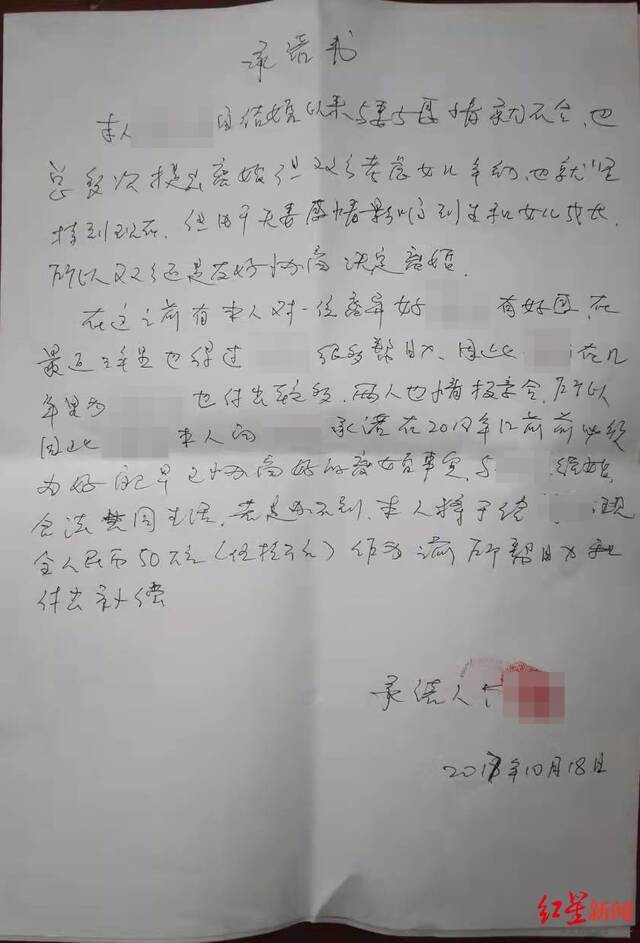 承诺书
本人 自结婚以来与妻子感情就不合,也
总多次提出离婚但双方考虑女儿年幼,也就坚
持到现在,但由于夫妻感情影响到生和女儿成长,
所以双方还是友好协商决定离婚.
在这之前有本人对一位离异好 有好因,在
最近三年里也得过 很多帮助,因此 在几
年里为 也付出, 两人也情投意合,所以
因此 本人向 承诺在2018年12前前必须
为好 早已协商好的离婚事宜,与 结婚,
合法共同生活,若是办不到,本人将于给 现
金人民币50万元(伍拾万元)作为之前所帮助和
付出补偿
承诺人
2017年10月18日
红星新闻